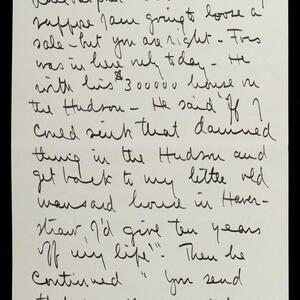 suppose I am going to loose a
sale - but you are right -
was in here only to day - He
with his $300000 house on
the Hudson - He said "If I
could sink that damned
thing in the Hudson and
get back to my little old
mansard house in Haver-
straw, I'd give ten years
off my life". Then he
continued "You send